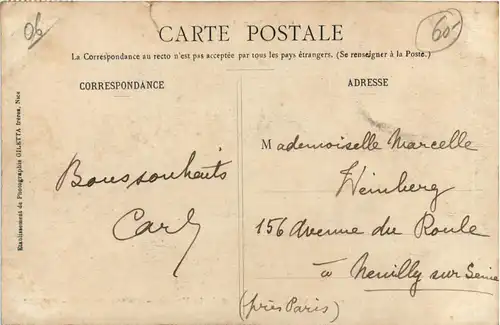 06
CARTE POSTALE
60-
La Correspondance au recto n'est pas acceptée par tous les pays étrangers. (Se renseigner à la Poste.)
CORRESPONDANCE
ADRESSE
Etablissement de Photographie GILETTA frères, Nice
Bons souhaits
Carl
Mademoiselle Marcelle
Weinberg
156 Avenue du Roule
à Neuilly sur Seine
(près Paris)